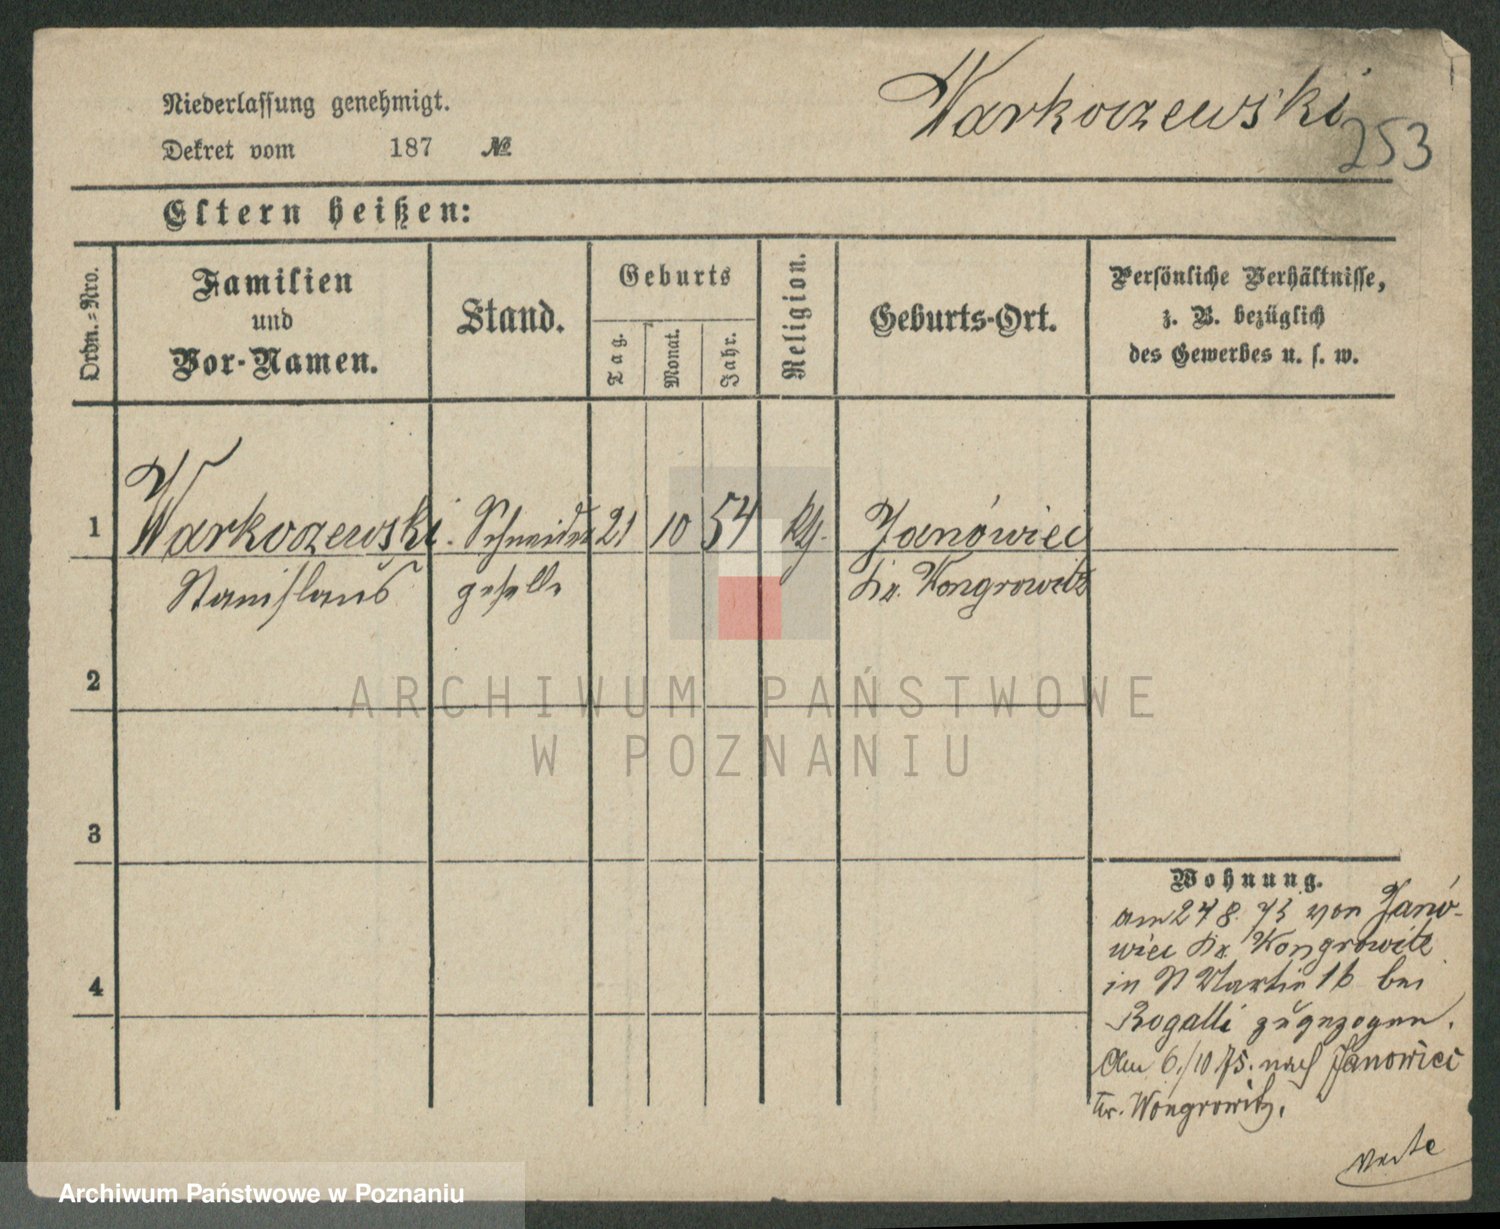 Warkoczewski
253
Niederlassung genehmigt.
Dekret vom 187 №
Eltern heißen:
Ordn.=Nro.
Familien
und
Vor-Namen.
Stand.
Geburts
Tag.
Monat.
Jahr.
Religion.
Geburts-Ort.
Persönliche Verhältnisse,
z. B. bezüglich
des Gewerbes u. s. w.
1 Warkoczewski. Schneider 21 10 54 kth. Janówiec
Stanislaus geselle Kr. Wongrowitz
2
3
4
Wohnung.
am 27 8. 75 von Janó-
wiec Kr. Wongrowitz
in St Martin 16 bei
Rogalli zugezogen.
Am 6./10 75. nach Janowiec
Kr. Wongrowitz.
verte
ARCHIWUM PAŃSTWOWE
W POZNANIU
Archiwum Państwowe w Poznaniu